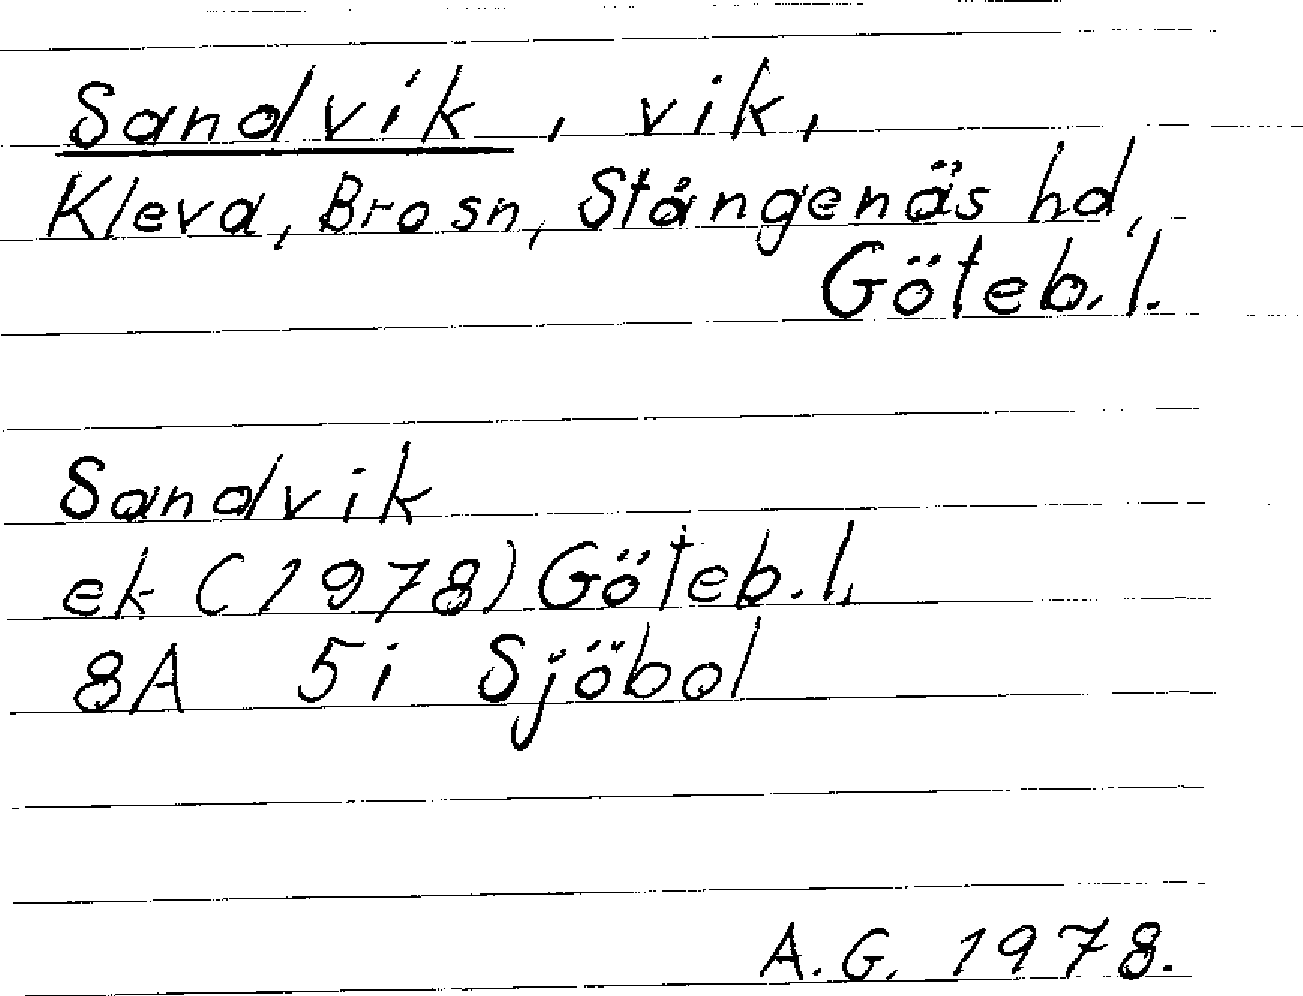 Sandvik, vik,
Kleva, Bro sn, Stångenäs hd,
Göteb. l.
Sandvik
ek (1978) Göteb. l,
8A 5i Sjöbol
A.G. 1978.